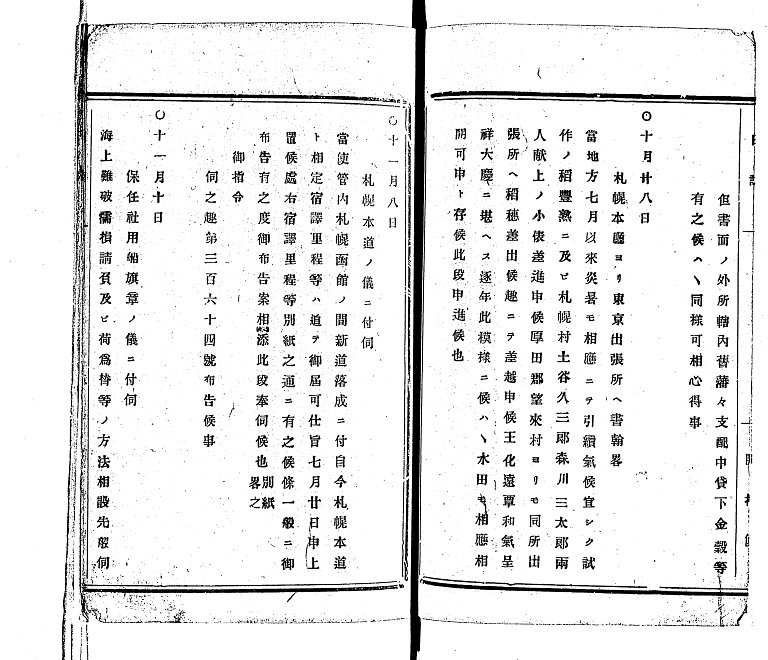 但書面ノ外所轄内舊藩々支配中貸下金穀等
有之候ハヽ同様可相心得事
〇十月廿八日
札幌本廳ヨリ東京出張所ヘ書翰畧
當地方七月以來炎暑モ相應ニテ引續氣候宜シク試
作ノ稻豐熟ニ及ヒ札幌村土谷久三郎森川三太郎兩
人献上ノ小俵差進申候厚田郡望來村ヨリモ同所出
張所ヘ稻穂差出候趣ニテ差越申候王化遠覃和氣呈
祥大慶ニ堪ヘス逐年此模様ニ候ハヽ水田モ相應相
開可申ト存候此段申進候也
〇十一月八日
札幌本道ノ儀ニ付伺
當使管内札幌函館ノ間新道落成ニ付自今札幌本道
ト相定宿譯里程等ハ追テ御届可仕旨七月廿日申上
置候處右宿譯里程等別紙之通ニ有之候條一般ニ御
布告有之度御布告案相添此段奉伺候也 別紙畧之
御指令
伺之趣第三百六十四號布告候事
〇十一月十日
保任社用船旗章ノ儀ニ付伺
海上難破濡損請負及ヒ荷爲替等ノ方法相設先般伺